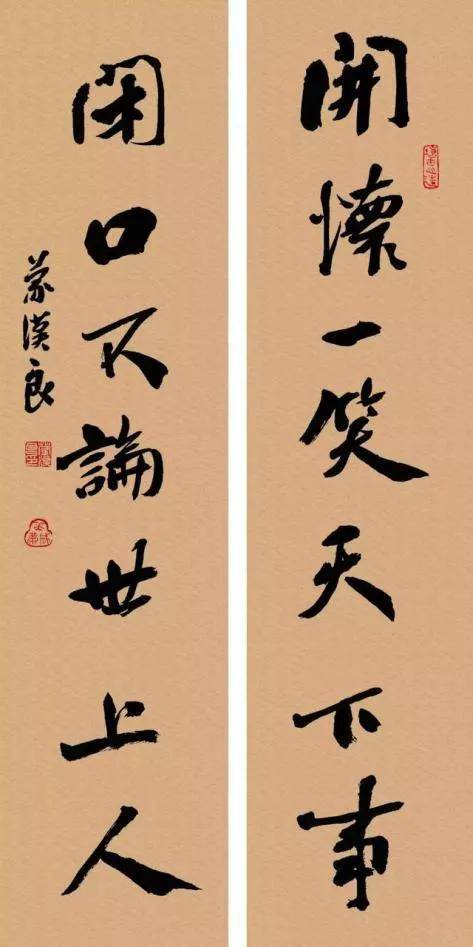 開懷一笑天下事
閉口不論世上人
蒙漢良